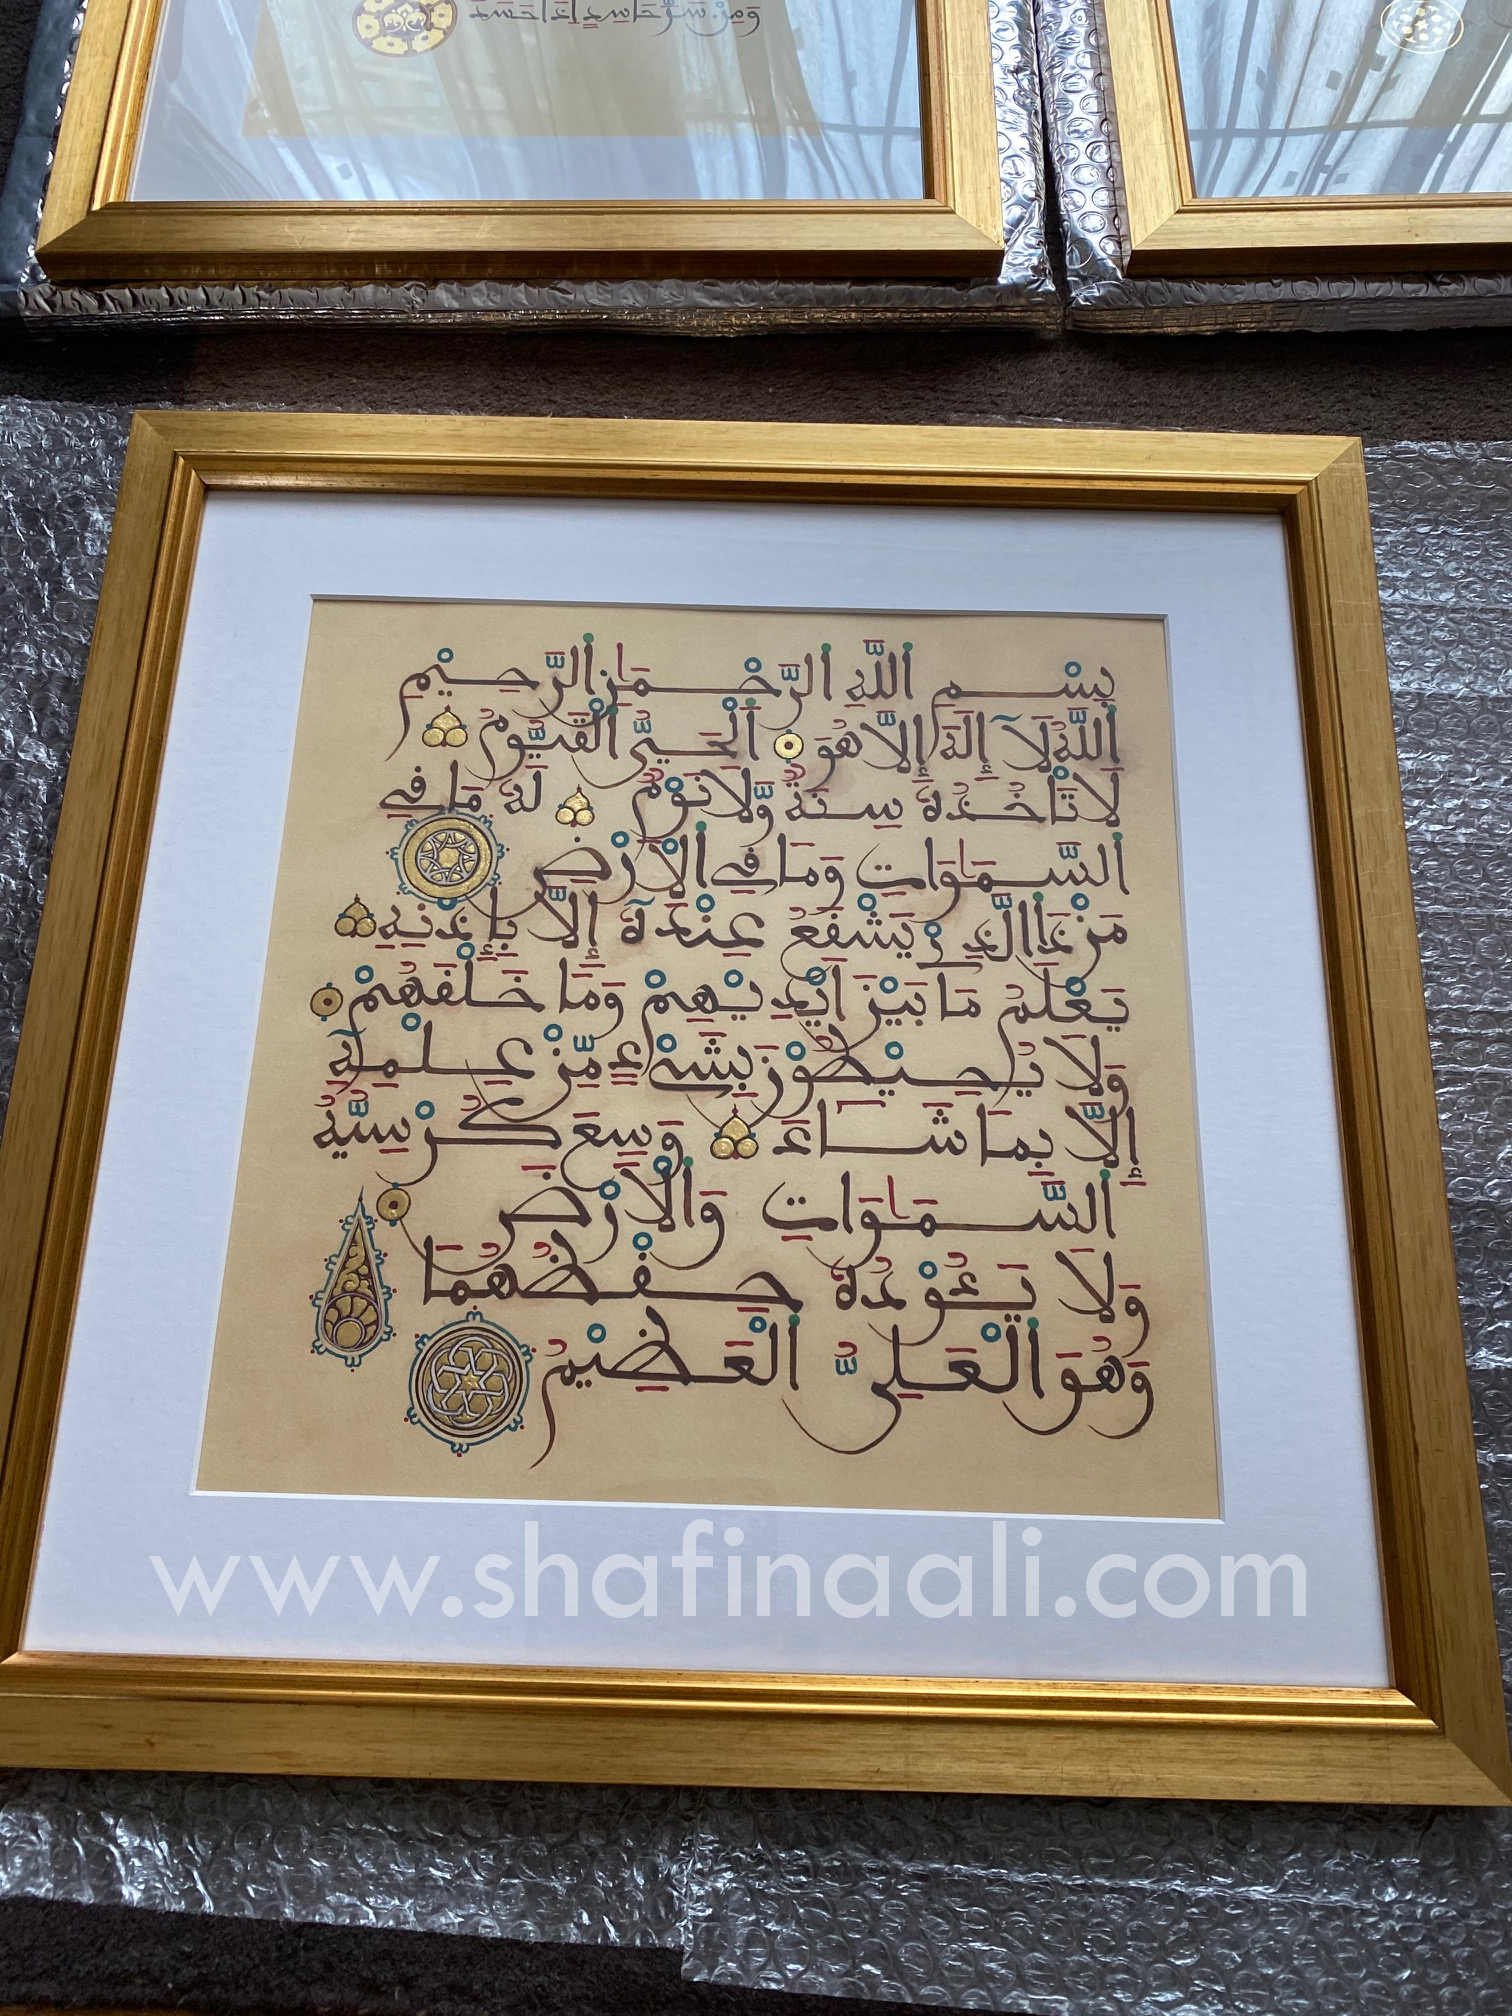 وَمِن شَرِّ حَاسِدٍ إِذَا حَسَدَ
بِسْمِ اللَّهِ الرَّحْمَٰنِ الرَّحِيمِ
اللَّهُ لَآ إِلَٰهَ إِلَّا هُوَ الْحَيُّ الْقَيُّومُ
لَا تَأْخُذُهُ سِنَةٌ وَّلَا نَوْمٌ لَهُ مَا فِي
السَّمَٰوَاتِ وَمَا فِي الْأَرْضِ
مَنْ ذَا الَّذِي يَشْفَعُ عِنْدَهُ إِلَّا بِإِذْنِهِ
يَعْلَمُ مَا بَيْنَ أَيْدِيْهِمْ وَمَا خَلْفَهُمْ
وَلَا يُحِيْطُوْنَ بِشَيْءٍ مِّنْ عِلْمِهِ
إِلَّا بِمَا شَاءَ وَسِعَ كُرْسِيُّهُ
السَّمَٰوَاتِ وَالْأَرْضَ
وَلَا يَئُوْدُهُ حِفْظُهُمَا
وَهُوَ الْعَلِيُّ الْعَظِيمُ
www.shafinaali.com